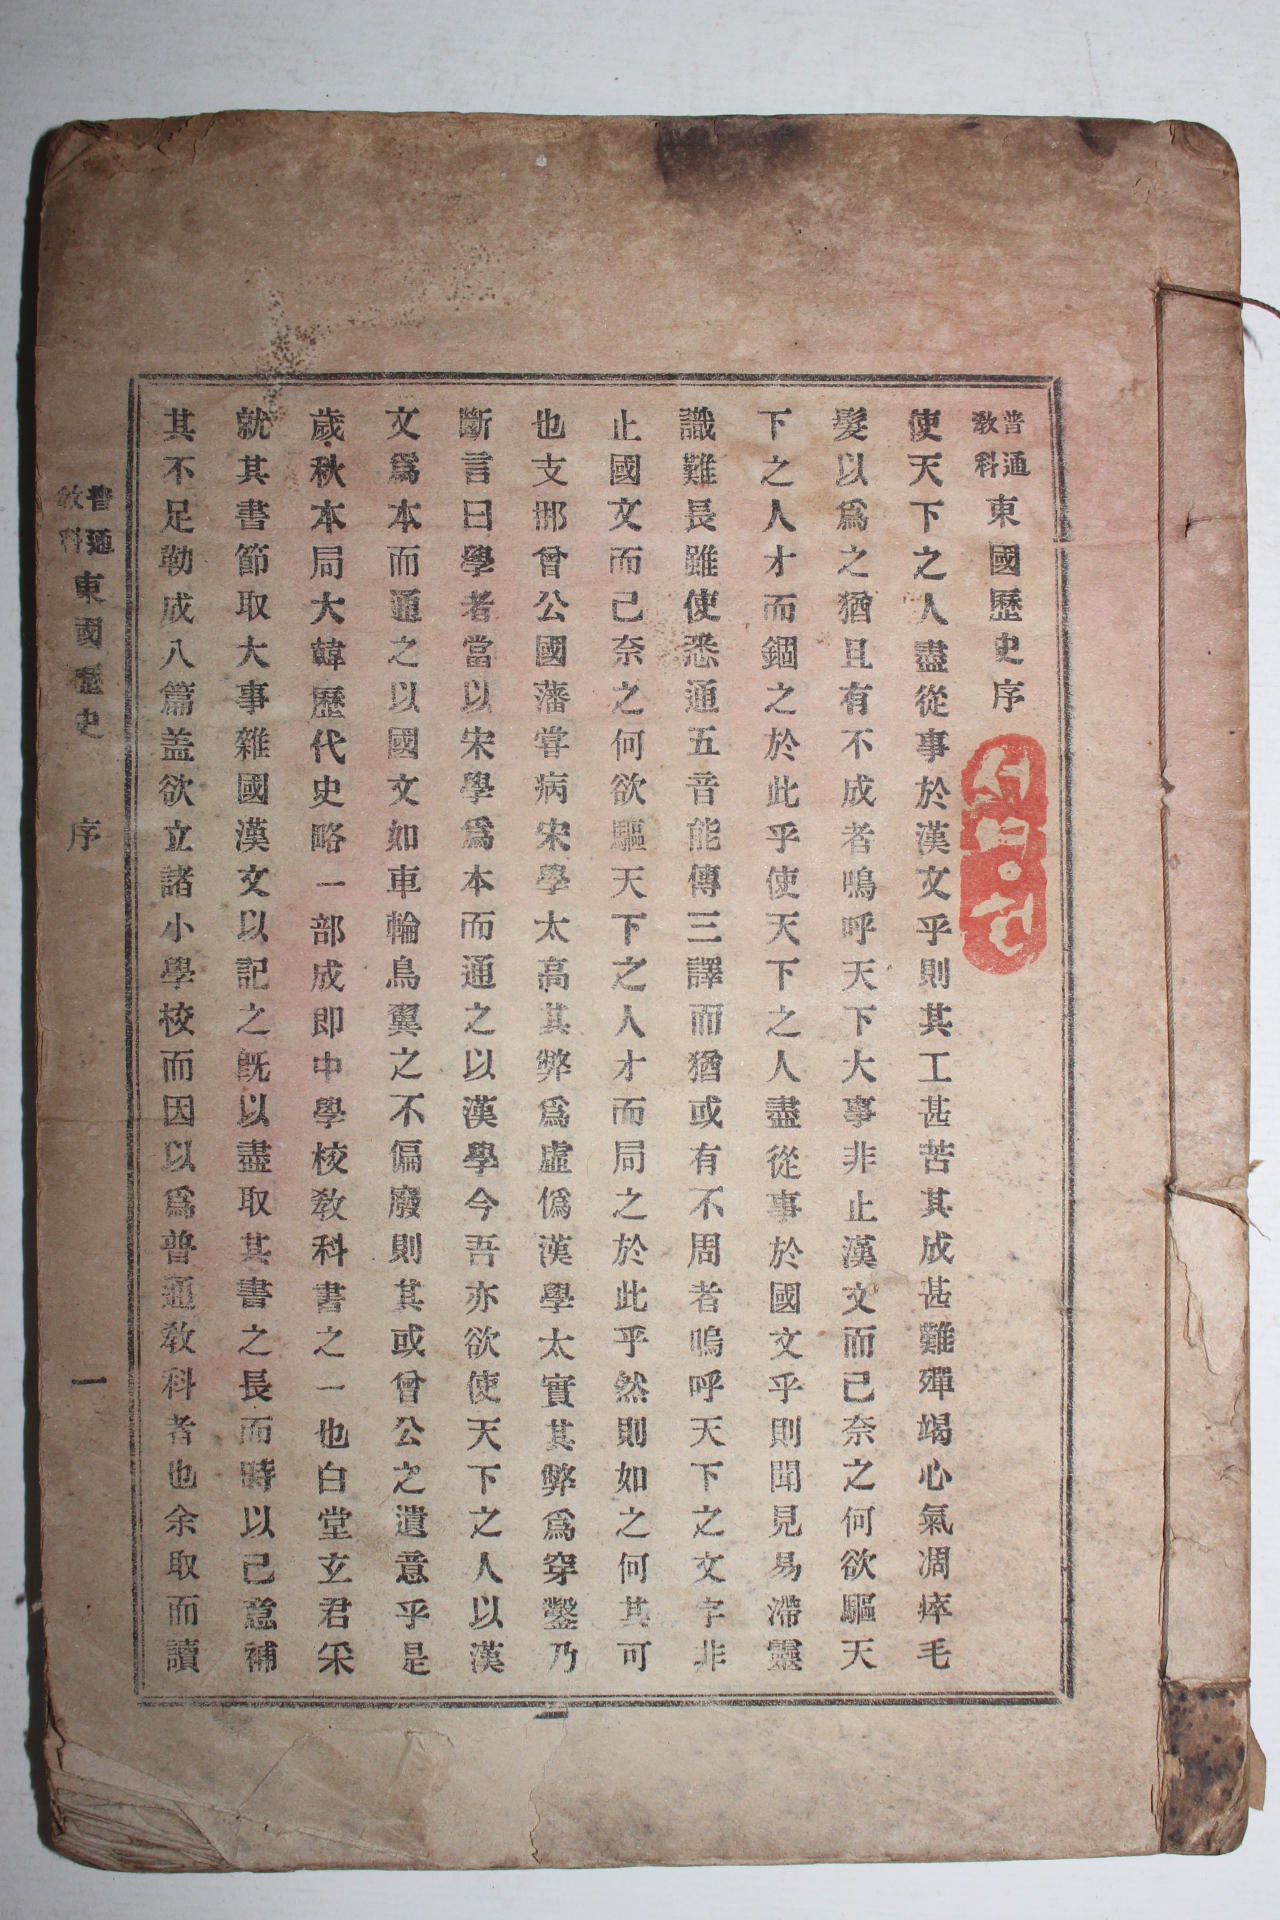 普通敎科東國歷史序
서명헌
使天下之人盡從事於漢文乎則其工甚苦其成甚難殫竭心氣凋瘁毛
髮以爲之猶且有不成者嗚呼天下大事非止漢文而已奈之何欲驅天
下之人才而錮之於此乎使天下之人盡從事於國文乎則聞見易滯靈
識難長雖使悉通五音能傳三譯而猶或有不周者嗚呼天下之文字非
止國文而已奈之何欲驅天下之人才而局之於此乎然則如之何其可
也支那曾公國藩嘗病宋學太高其弊爲虛僞漢學太實其弊爲穿鑿乃
斷言曰學者當以宋學爲本而通之以漢學今吾亦欲使天下之人以漢
文爲本而通之以國文如車輪鳥翼之不偏廢則其或曾公之遺意乎是
歲秋本局大韓歷代史略一部成即中學校敎科書之一也白堂玄君采
就其書節取大事雜國漢文以記之旣以盡取其書之長而時以己意補
其不足勒成八篇盖欲立諸小學校而因以爲普通敎科者也余取而讀
普通敎科東國歷史 序 一